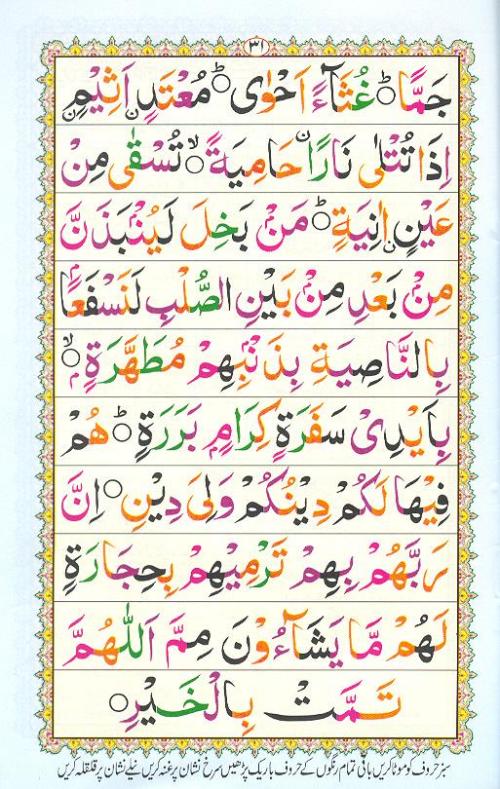 ۳۱
جَمًّا ؕ غُثَآءً اَحْوٰی ؕ مُعْتَدٍ اَثِیْمٍ
اِذَا تُتْلٰی نَارًا حَامِیَةً ۙ تُسْقٰی مِنْ
عَیْنٍ اٰنِیَةٍ ؕ مَنْۢ بَخِلَ لَیُنْۢبَذَنَّ
مِنْۢ بَعْدِ مِنْۢ بَیْنِ الصُّلْبِ لَنَسْفَعًۢا
بِالنَّاصِیَةِ بِذَنْۢبِهِمْ مُطَهَّرَةٍۭ ۙ
بِاَیْدِیْ سَفَرَةٍ كِرَامٍۭ بَرَرَةٍ ؕ هُمْ
فِیْهَا لَكُمْ دِیْنُكُمْ وَلِیَ دِیْنِ ۝ اِنَّ
رَبَّهُمْ بِهِمْ تَرْمِیْهِمْ بِحِجَارَةٍ
لَهُمْ مَّا یَشَآءُوْنَ مِمَّ اَللّٰهُمَّ
تَمَّتْ بِالْخَیْرِ ۝
سبز حروف کو موٹا کریں باقی تمام رنگوں کے حروف باریک پڑھیں سرخ نشان پر غنہ کریں نیلے نشان پر قلقلہ کریں